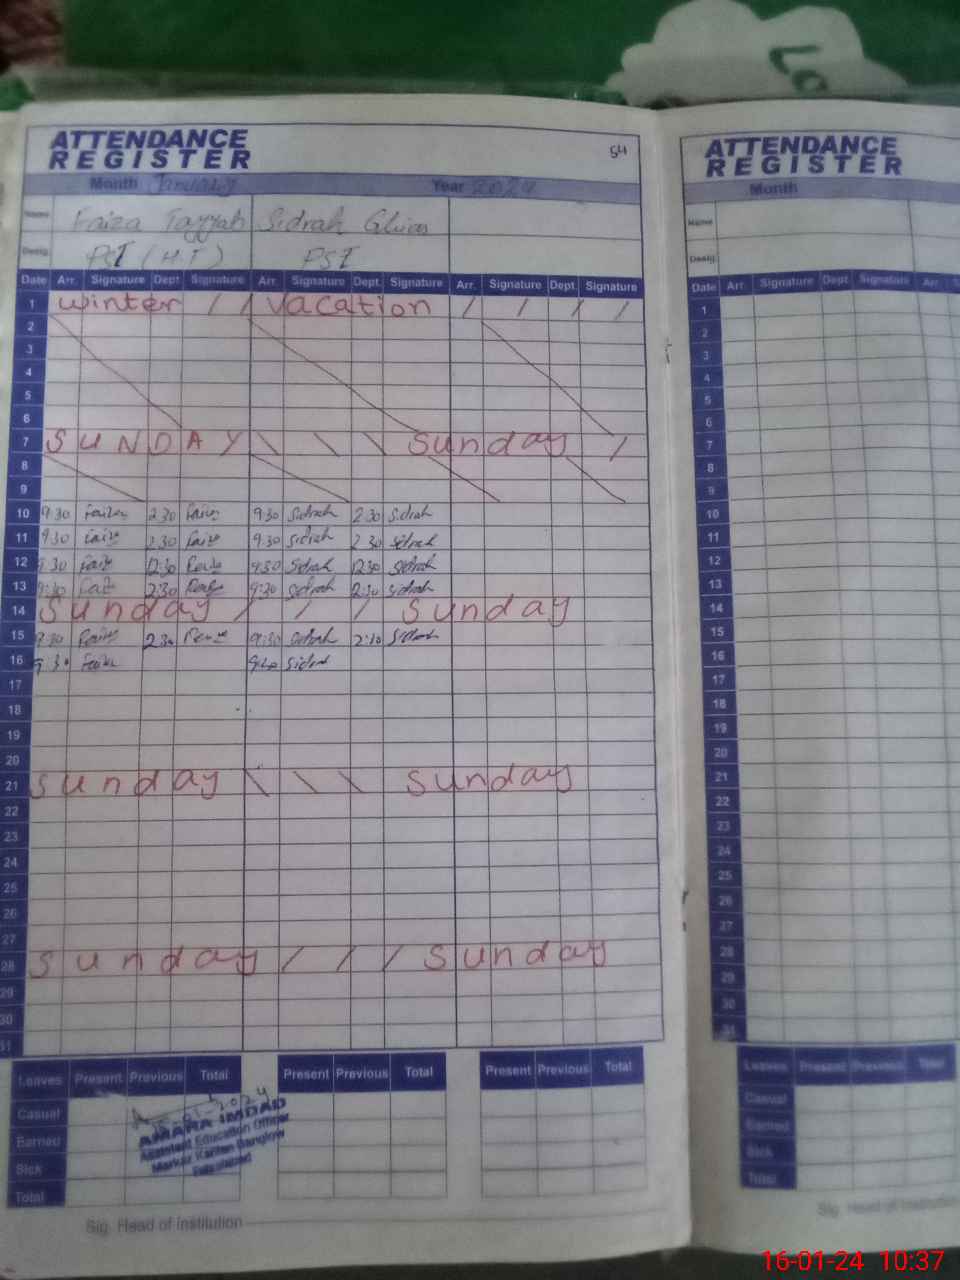 ATTENDANCE
REGISTER
54
Month January Year 2024
Name Faiza Tayyab Sidrah Ghias
Desig. PST (H.T) PST
Date Arr. Signature Dept. Signature Arr. Signature Dept. Signature Arr. Signature Dept. Signature
1 winter / / vacation / / / /
2
3
4
5
6
7 SUNDAY \ \ \ Sunday /
8
9
10 9:30 Faiza 2:30 Faiza 9:30 Sidrah 2:30 Sidrah
11 9:30 Faiza 2:30 Faiza 9:30 Sidrah 2:30 Sidrah
12 9:30 Faiza 12:30 Faiza 9:30 Sidrah 12:30 Sidrah
13 9:30 Faiza 2:30 Faiza 9:30 Sidrah 2:30 Sidrah
14 Sunday / / / Sunday
15 9:30 Faiza 2:30 Faiza 9:30 Sidrah 2:30 Sidrah
16 9:30 Faiza Sidrah
17
18
19
20
21 Sunday \ \ \ Sunday
22
23
24
25
26
27
28 Sunday / / / Sunday
29
30
31
Leaves Present Previous Total Present Previous Total Present Previous Total
Casual
Earned
Sick
Total
AMARA IMDAD
Assistent Education Officer
Faisalabad
Sig. Head of institution
ATTENDANCE
REGISTER
Month
Name
Desig.
Date Arr. Signature Dept. Signature Arr.
1
2
3
4
5
6
7
8
9
10
11
12
13
14
15
16
17
18
19
20
21
22
23
24
25
26
27
28
29
30
31
Leaves Present Previous Total
Casual
Earned
Sick
Total
Sig. Head of institution
16-01-24 10:37